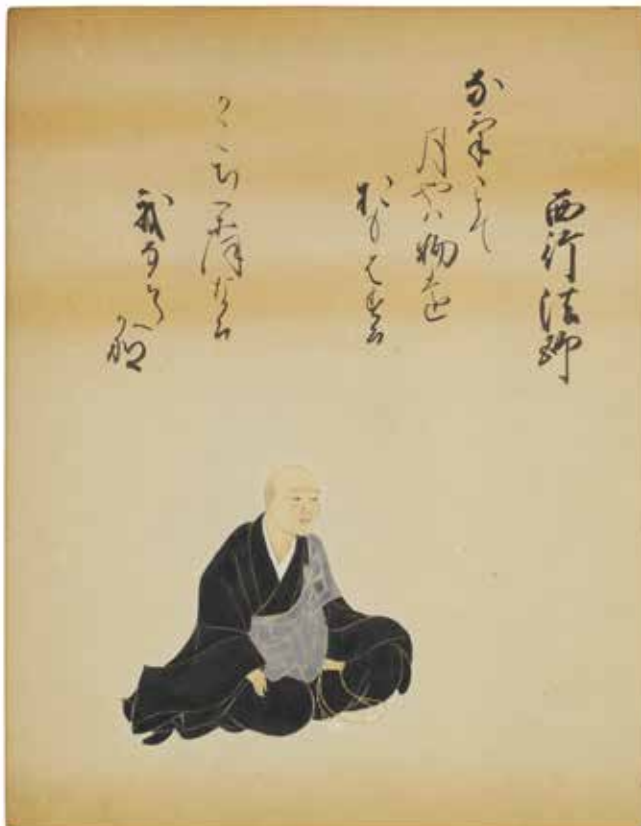 西行法師
なけゝとて
月やハ物を
おもはする
かこち顔なる
我なみた哉